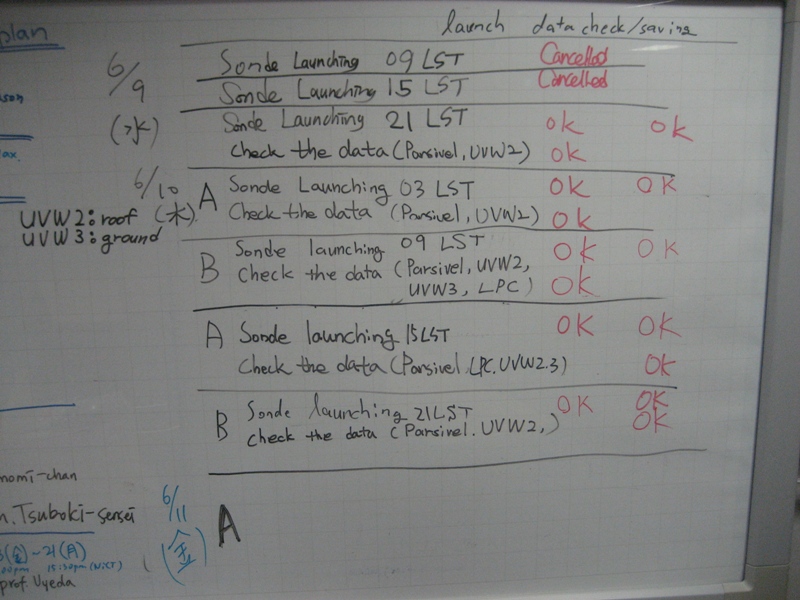 plan
launch data check/saving
6/9 Sonde Launching 09 LST Cancelled
Sonde Launching 15 LST Cancelled
(水) Sonde Launching 21 LST ok ok
check the data (Parsivel, UVW2) ok
6/10 A Sonde Launching 03 LST OK OK
UVW2:roof (木) Check the data (Parsivel, UVW2) OK
UVW3:ground
B Sonde launching 09 LST OK OK
Check the data (Parsivel, UVW2,
UVW3, LPC) OK
A Sonde launching 15 LST OK OK
Check the data (Parsivel. LPC. UVW2.3) OK
B Sonde launching 21 LST OK OK
check the data (Parsivel. UVW2,) OK
nomi-chan
6/11 A
n. Tsuboki-sensei
(金)
(金)~21(月)
15:30pm (NiCT)
prof. Uyeda